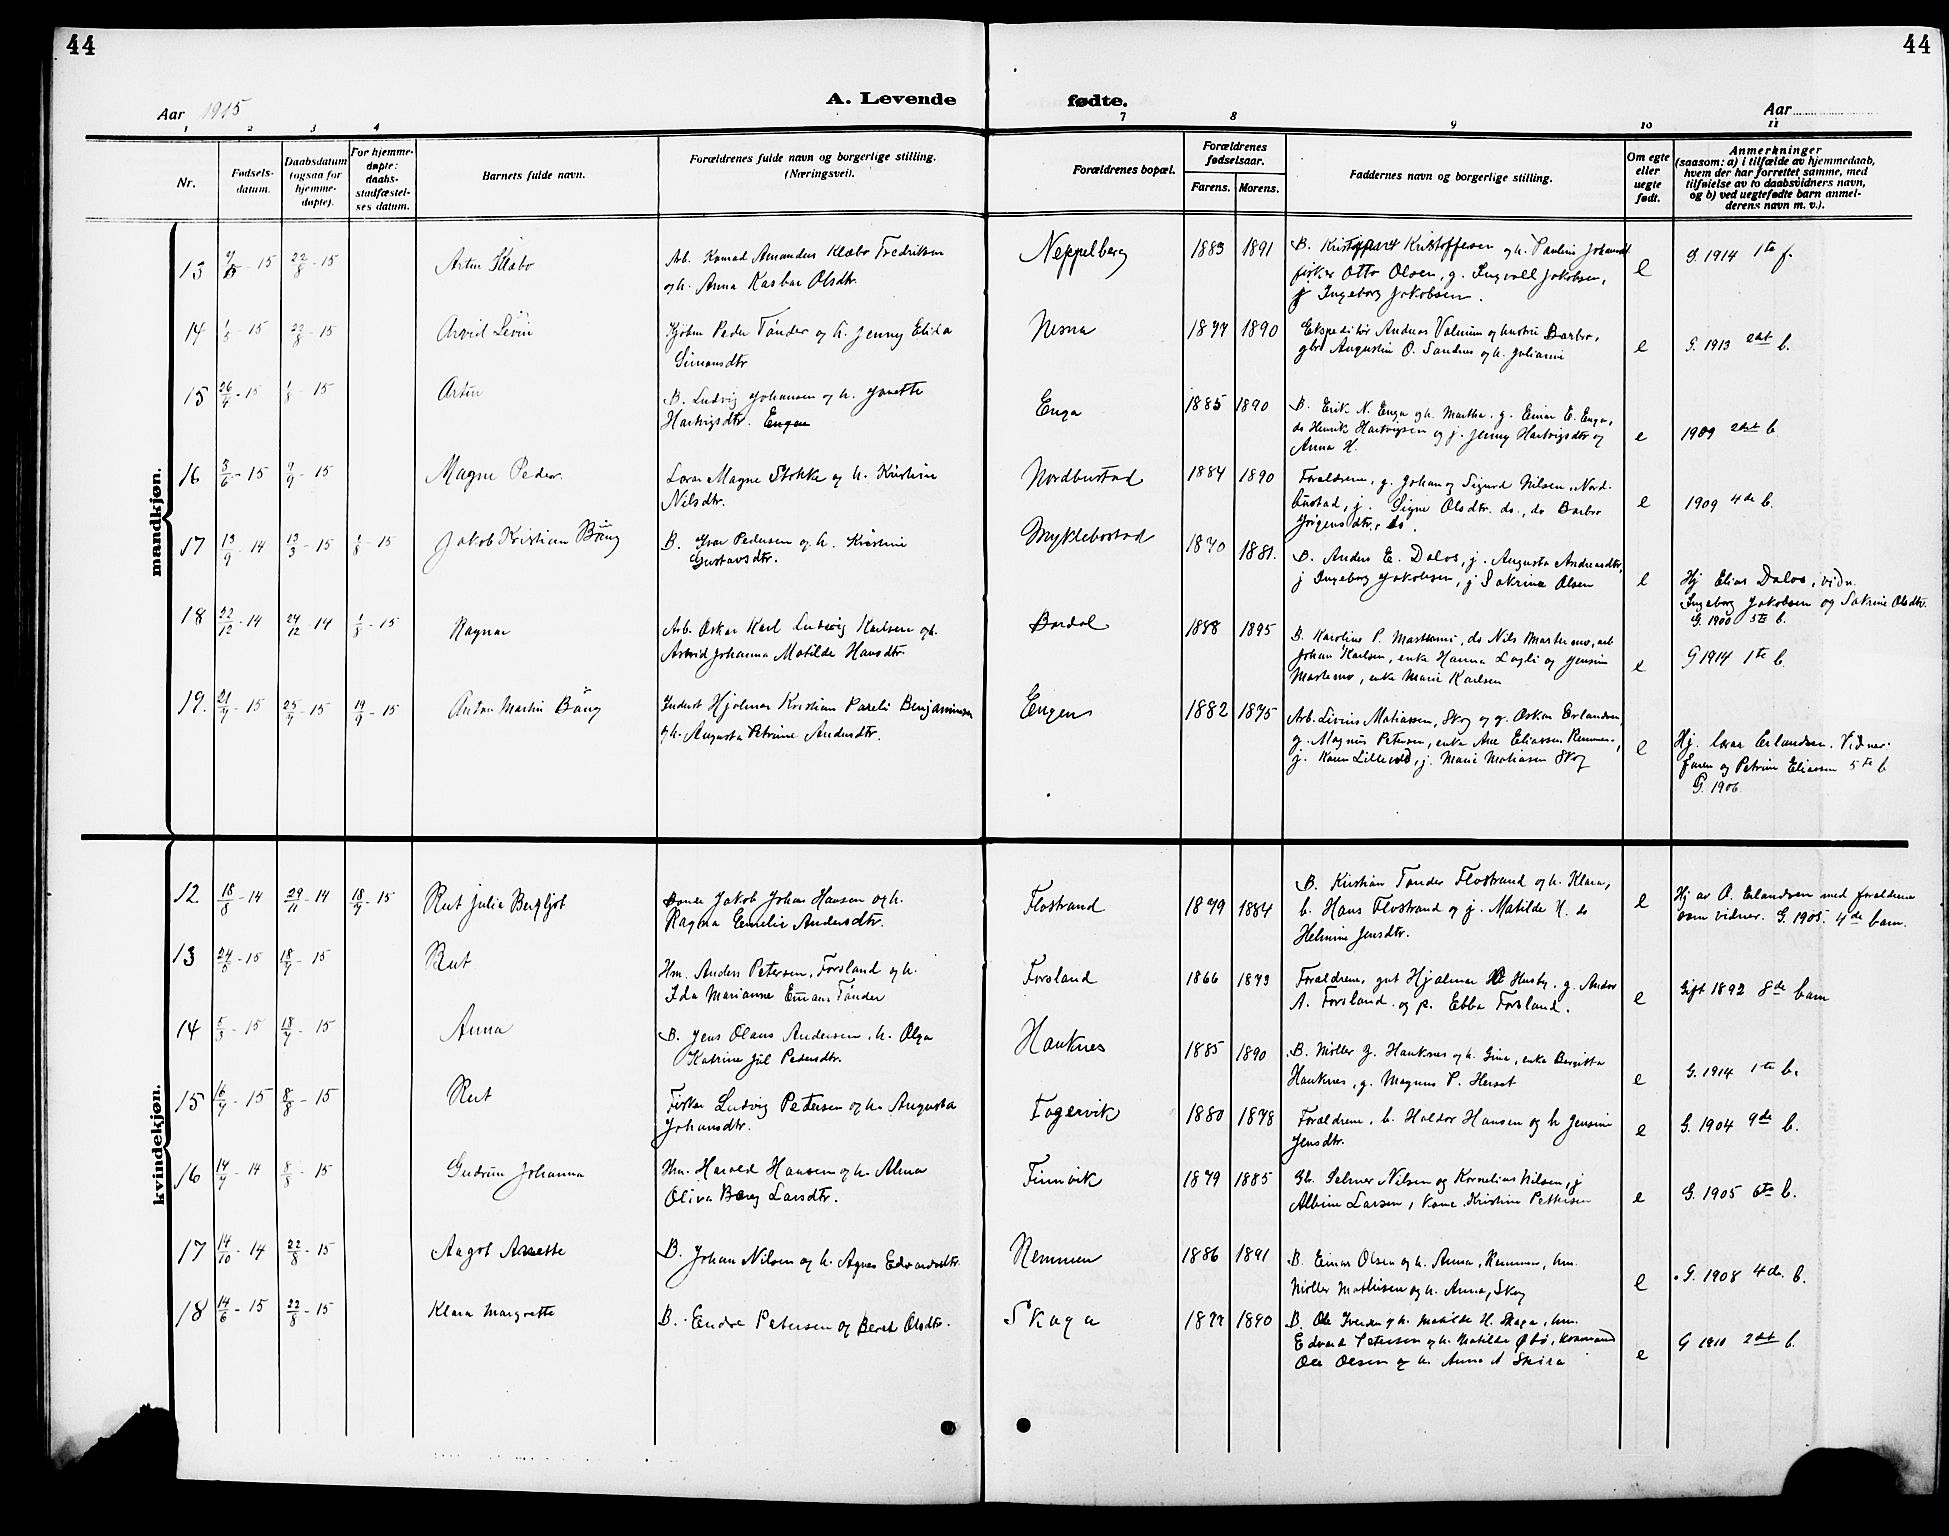 44
44
Aar 1915
A. Levende fødte.
Aar
1 2 3 4 7 8 9 10 11
Nr.
Fødsels-
datum.
Daabsdatum
(ogsaa for
hjemme-
døpte).
For hjemme-
døpte:
daabs-
stadfæstel-
ses datum.
Barnets fulde navn.
Forældrenes fulde navn og borgerlige stilling.
(Næringsvei).
Forældrenes bopæl.
Forældrenes
fødselsaar.
Farens. Morens.
Faddernes navn og borgerlige stilling.
Om egte
eller
uegte
født.
Anmerkninger
(saasom: a) i tilfælde av hjemmedaab,
hvem der har forrettet samme, med
tilføielse av to daabsvidners navn,
og b) ved uegtefødte barn anmel-
derens navn m. v.).
mandkjøn.
13 22/8-15 Artur Klæbo
Arb. Konrad Amandus Klæbo Fredriksen
og h. Anna Kasbara Olsdtr.
Neppelberg 1883 1891
B. Kristoffer Kristoffersen og h. Pauline
fisker Otto Olsen, g. Ingvall Jakobsen,
j Ingeborg Jakobsen.
e G. 1914 1ste f.
14 22/8-15 Arvid Levin
Kjøbm Peder Tønder og h. Jenny Elida
Simonsdtr
Nesna 1877 1890
Ekspeditør Andreas Valnum og hustru Barbro,
gbr Augustin O. Sandnes og h. Julianne
e G. 1913 2det b.
15 26/4-15 1/8-15 Artur
B. Ludvig Johansen og h. Janette
Hartvigsdtr. Engen
Enga 1885 1890
B. Erik N. Enga og h. Martha. g. Einar E. Enga,
do Henrik Hartvigsen og j. Jenny Hartvigsdtr og
Anna H.
e 1909 2det b
16 3/6-15 9/9-15 Magne Peder.
Lærer Magne Stokke og h. Kristine
Nilsdtr.
Nordbustad 1884 1890
Forældrene, g. Johan og Sigurd Nilsen, Nord-
bustad, j. Signe Olsdtr. do., do Barbro
Jørgensdtr., do.
e 1909 4de b.
17 13/9-14 13/3-15 1/8-15 Jakob Kristian Bang
B. Ivar Pedersen og h. Kristine
Gustavsdtr.
Myklebostad 1870 1881.
B. Anders E. Dalos, j. Augusta Andreasdtr,
j Ingeborg Jakobsen, j Sakrina Olsen
e Hj Elias Dalos, vidn.
Ingeborg Jakobsen og Sakrine Olsdtr.
G. 1900 5te b.
18 22/12-14 24/12-14 1/8-15 Ragnar
Arb. Oskar Karl Ludvig Karlsen og h.
Astrid Johanna Matilde Hansdtr.
Bardal 1888 1895
B. Karolius P. Mastermo, do Nils Mastermo, arb
Johan Karlsen, enke Hanna Lagli og Jensine
Mastermo, enke Marie Karlsen
e G 1914 1te b.
19. 21/4-15 25/4-15 19/9-15 Andor Martin Bang
Inderst Hjalmar Kristian Pareli Benjaminsen
og h. Augusta Petrine Andersdtr.
Engen 1882 1875
Arb. Livius Matiassen, Skog og g. Oskar Erlandsen,
g. Magnus Petersen, enke Ane Eliassen Remmen,
j. Karen Lillevold, j. Marie Matiasen Skog
e Hj. lærer Erlandsen. Vidner:
Faren og Petrine Eliassen 5te b
G. 1906
kvindekjøn.
12 18/8-14 29/11-14 18/7-15 Rut Julia Bergljot
Bonde Jakob Johan Hansen og h.
Ragna Emelie Andersdtr.
Flostrand 1879 1884
B. Kristian Tønder Flostrand og h. Klara,
b. Hans Flostrand og j. Matilde H. do
Helmine Jensdtr.
e Hj av O. Erlandsen med forældrene
som vidner. G. 1905. 4de barn.
13 24/5-15 18/7-15 Rut
Hm. Anders Petersen, Forsland og h.
Ida Marianne Emans Tønder
Forsland 1866 1873
Forældrene, gut Hjalmar Husby. g. Andor
A. Forsland. og p. Ebba Forsland.
e Gift 1892 8de barn
14 5/3-15 18/7-15 Anna
B. Jens Olaus Andersen. h. Olga
Katrine Jül Pedersdtr.
Hauknes 1885 1890
B. Møller J. Hauknes og h. Gina, enke Bergitta
Hauknes, g. Magnus P. Herset
e G. 1914 1te b.
15 16/4-15 8/8-15 Rut
Fisker Ludvig Petersen og h. Augusta
Johansdtr.
Fagervik 1880 1878
Forældrene, b. Haldor Hansen og h Jensine
Jensdtr.
e G. 1904 9de b.
16 14/7-14 8/8-15 Gudrun Johanna
Hm. Harald Hansen og h. Alma
Oliva Berg Larsdtr.
Finnvik 1879 1885
Gb. Selmer Nilsen og Kornelius Nilsen, j
Albine Larsen, kone Kristine Pettersen
e G. 1905 6te b.
17 14/10-14 22/8-15 Aagot Anette
B. Johan Nilsen og h. Agnes Edvardsdtr.
Remmen 1886 1891
B. Einar Olsen og h. Anna, Remmen, hm.
Møller Mathisen og h. Anna, Skog
e G. 1908 4de b.
18 14/6-15 22/8-15 Klara Margrette
B. Endre Petersen og Beret Olsdtr.
Skaga 1877 1890
B. Ole Iversen og h. Matilde H. Skaga, hm.
Edvard Petersen og h. Matilde Øbø,
Ole Olsen og h. Anna A Skira
e G 1910 2det b.